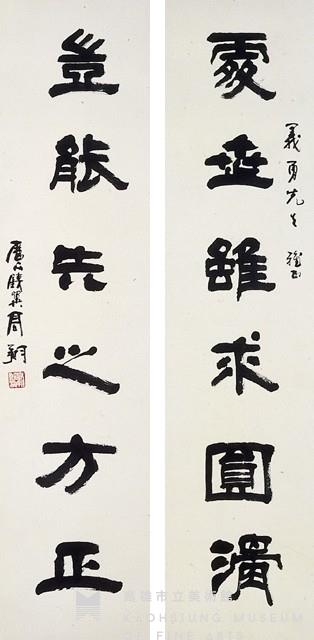 義勇先生 雅正
處世雖求圓滿
豈能失之方正
高雄市立美術館
KAOHSIUNG MUSEUM
OF FINE ARTS